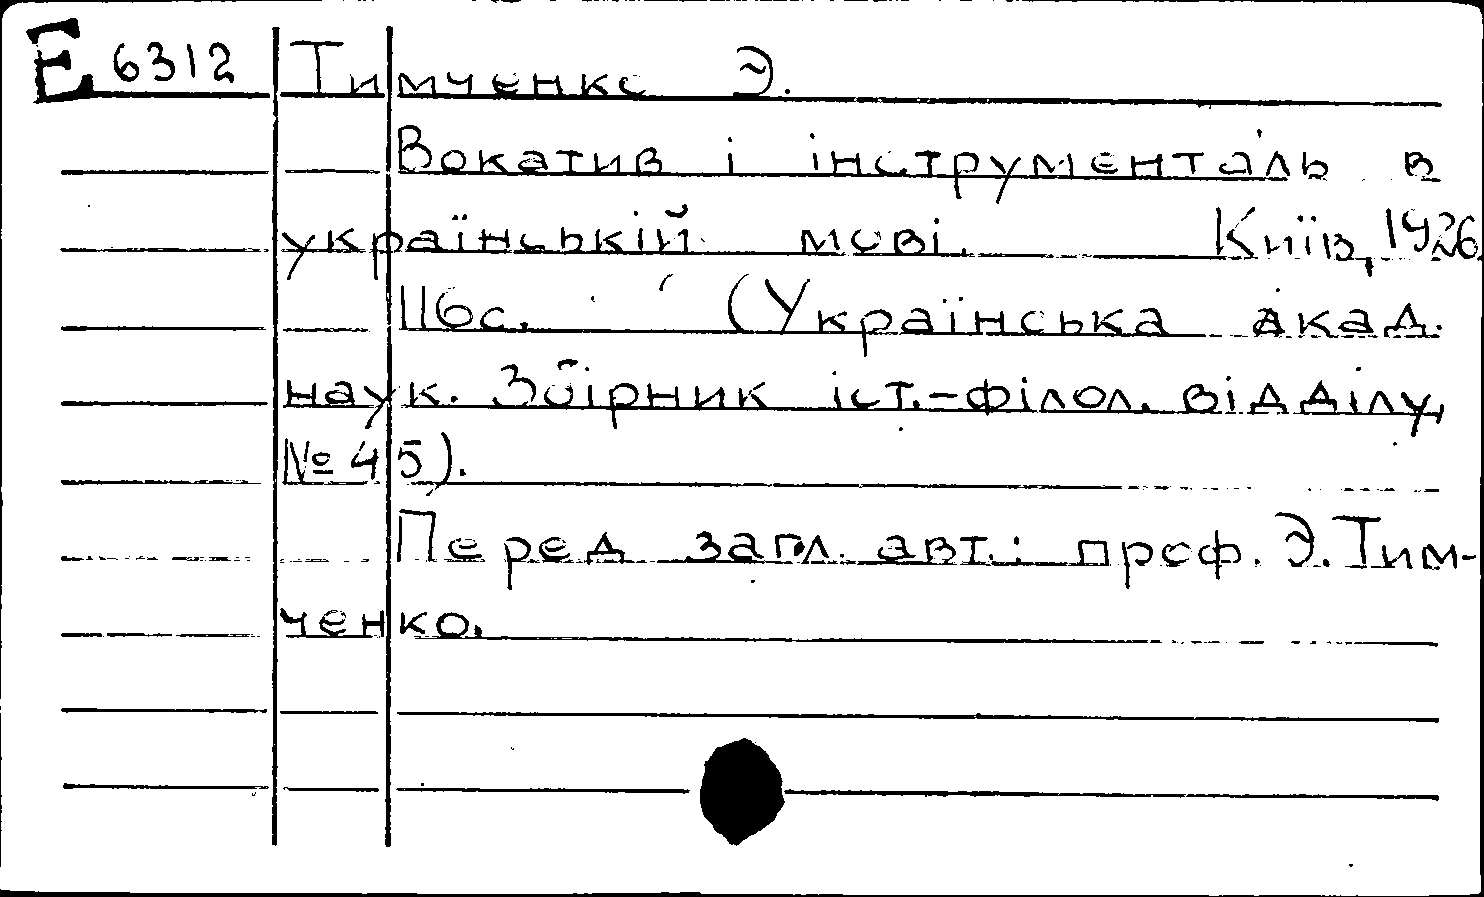 Е 6312 Тимченко Э.
Вокатив і інструменталь в
українській мові. Київ, 1926
116с. (Українська акад.
наук. Збірник іст.-філол. відділу,
№ 45).
Перед загл. авт.: проф. Э. Тим-
ченко.